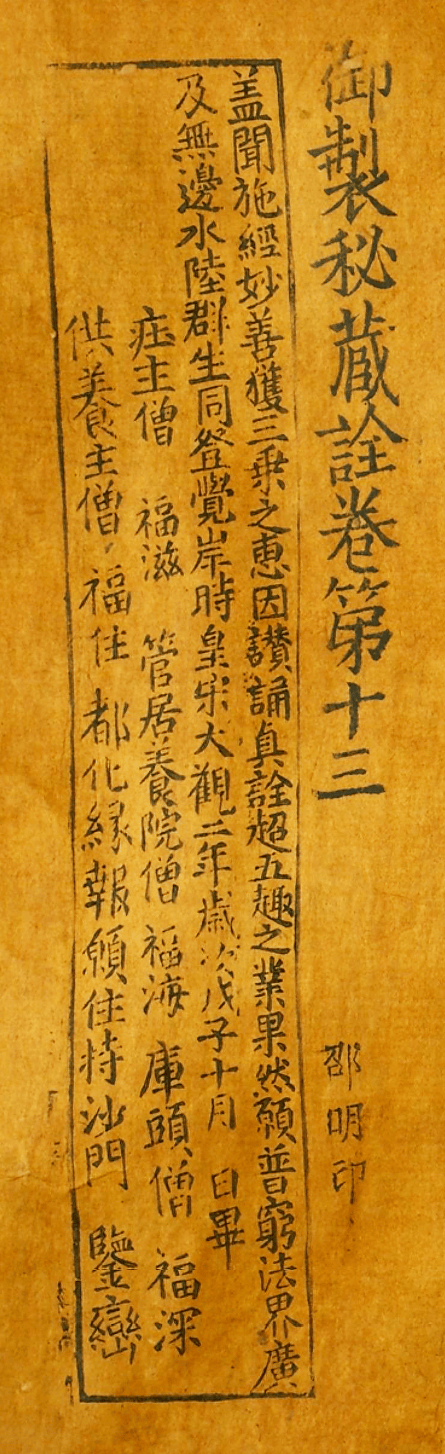 御製秘蔵詮卷第十三
邵明印
盖聞施經妙善獲三乗之惠因讃誦真詮超五趣之業果然願普窮法界廣
及無邊水陸群生同登覺岸時皇宋大觀二年歲次戊子十月 日畢
庄主僧 福滋 管居養院僧 福海 庫頭僧 福深
供養主僧 福住 都化縁報願住持沙門 鑒巒